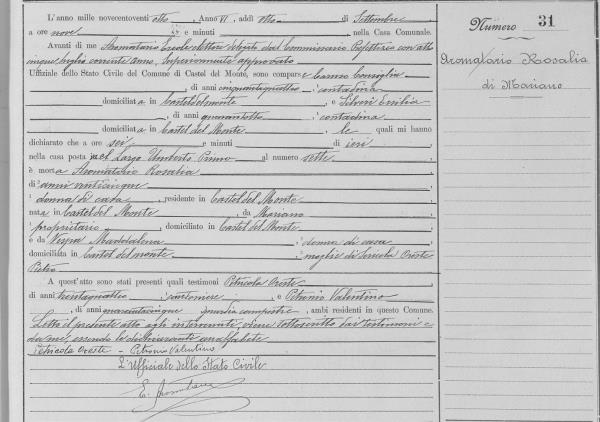 L'anno mille novecentoventi otto, Anno VI, addì otto di Settembre
a ore nove e minuti , nella Casa Comunale.
Avanti di me Aromatario Ercole delegato dal Commissario Prefettizio con atto
cinque luglio corrente anno, superiormente approvato
Uffiziale dello Stato Civile del Comune di Castel del Monte, sono comparse
, di anni cinquantaquattro , contadina
, domiciliata in Casteldelmonte , e Silveri Emilia
, di anni quarantotto , contadina
, domiciliata in Castel del Monte , le quali mi hanno
dichiarato che a ore sei e minuti di ieri
nella casa posta nel Largo Umberto Primo al numero sette
è morta Aromatario Rosalia
di anni venticinque
donna di casa , residente in Castel del Monte
nata in Castel del Monte , da Mariano
proprietario , domiciliato in Castel del Monte
e da Maddalena , donna di casa
domiciliata in Castel del monte , moglie di Oreste
Pietro
A quest'atto sono stati presenti quali testimoni Petricola Oreste
di anni trentaquattro , cantoniere , e Petronio Valentino
, di anni quarantacinque guardia campestre, ambi residenti in questo Comune.
Letto il presente atto agli intervenuti, viene sottoscritto dai testimoni e
da me, essendo le dichiaranti analfabete
Petricola Oreste - Petronio Valentino
L'Ufficiale dello Stato Civile
Numero 31
Aromatario Rosalia
di Mariano